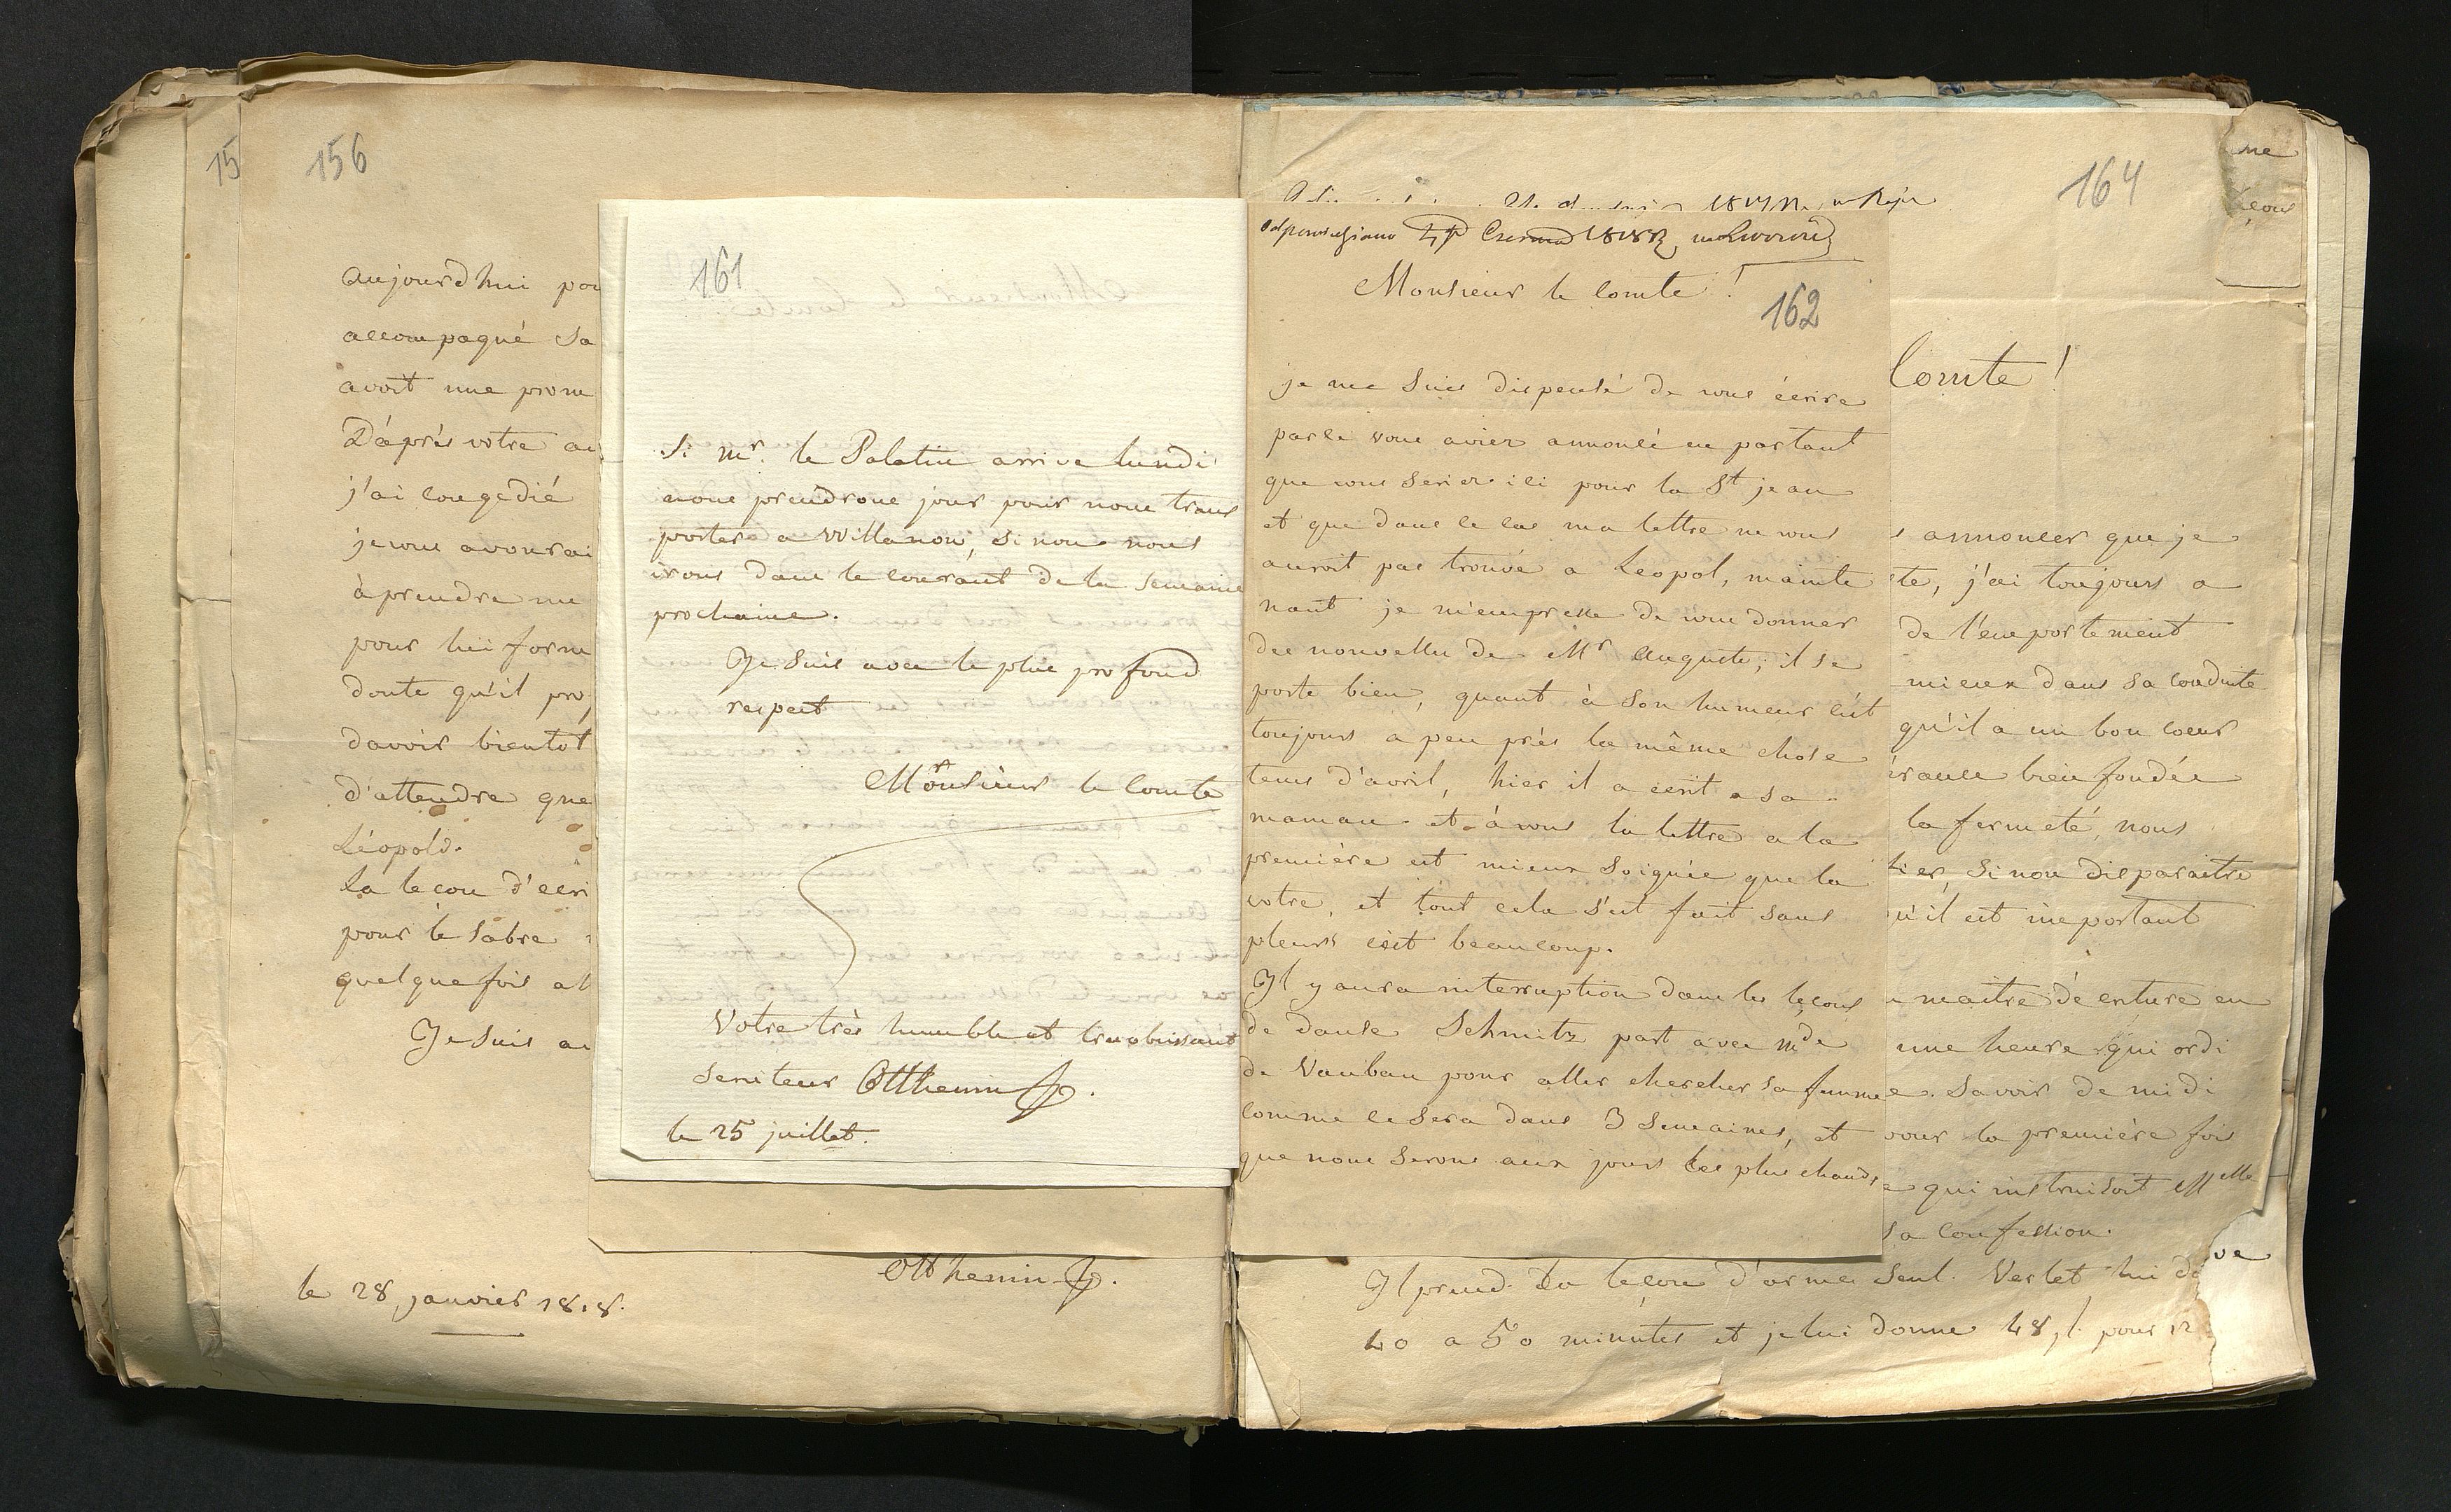 15
156
aujourd'hui pou
accompagné sa
avoit une prom
D'après votre au
j'ai congedié
je vous avourai
à prendre une
pour lui form
doute qu'il pro
davoir bientot
d'attendre que
Léopold.
la lecon d'ecri
pour le sabre
quelque fois al
Je suis au
Otthemin
le 28 janvier 1818.
161
Si mr. le Palatin arrive lundi
nous prendrons jour pour nous trans
porter a Willanow, si non nous
irons dans le courant de la semaine
prochaine.
Je suis avec le plus profond
respect
Monsieur le Comte
Votre très humble et tres obeissant
serviteur Otthemin
le 25 juillet.
162
Monsieur le Comte !
je me suis dispensé de vous écrire
parce vous aviez annoncé en partant
que vous seriez ici pour la St jean
et que dans ce cas ma lettre ne vous
auroit pas trouvé a Leopol, mainte
nant je m'empresse de vous donner
des nouvelles de Mr auguste; il se
porte bien, quant à son humeur c'est
toujours a peu près la même chose
tems d'avril, hier il a ecrit a sa
maman et à vous la lettre a la
première est mieux soignée que la
votre, et tout cela s'est fait sans
pleurs c'est beaucoup.
Il y aura interruption dans les leçons
de danse Schmitz part avec mde
de Vauban pour aller chercher sa femme
comme ce sera dans 3 semaines, et
que nous serons aux jours les plus chauds
164
me
leçons
Comte !
s annoncer que je
te, j'ai toujours a
de l'emportement
mieux dans sa conduite
qu'il a un bon coeur
érance bien fondée
la fermeté, nous
tier, si non disparaitre
qu'il est important
maitre d'ecriture en
une heure qui ordi
e. savoir de midi
pour la première fois
e qui instruisoit Melle
sa confession.
Il prend la leçon d'armes seul. Verlet lui do ve
40 a 50 minutes et je lui donne 48 f. pour 12